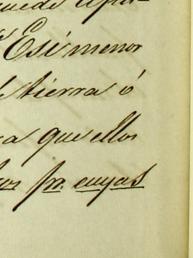 Esí menor
tierra ó
que ellos
pr. cuyas